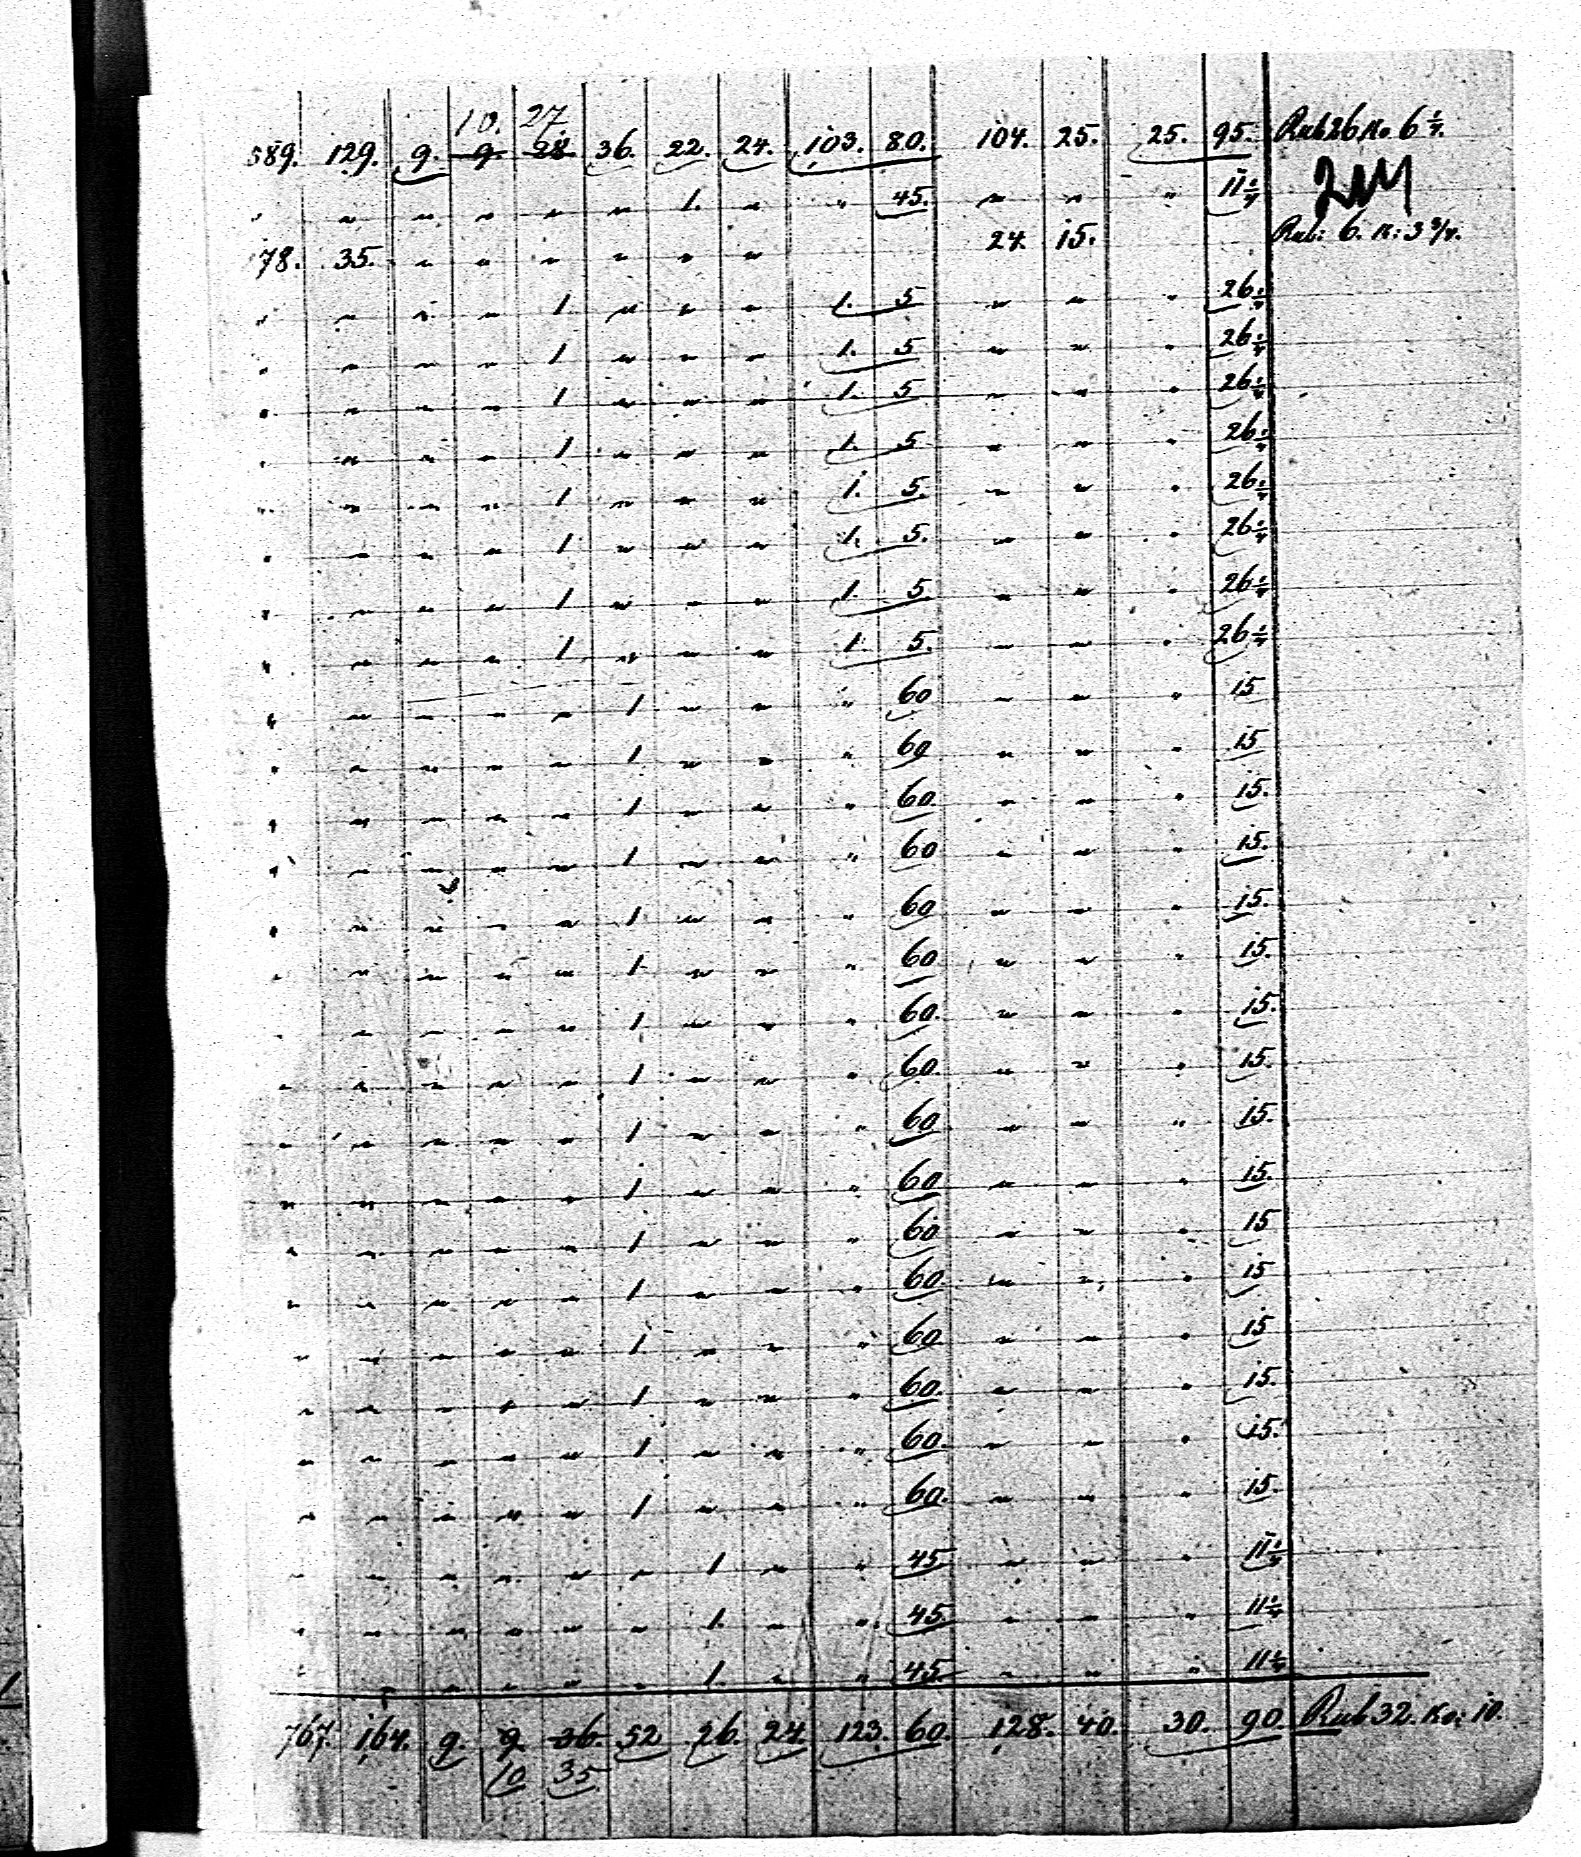 10. 27
589. 129. 9. 9. 28. 36. 22. 24. 103. 80. 104. 25. 25. 95. Rub 26 Ko. 6 1/4.
" " " " " " 1. " " 45. " " " 11 1/4
78. 35. " " " " " " 24. 15. Rub: 6. K: 3 3/4.
" " " " 1 " " " 1. 5 " " " 26 1/4
" " " " 1 " " " 1. 5 " " " 26 1/4
" " " " 1 " " " 1. 5 " " " 26 1/4
" " " " 1 " " " 1. 5 " " " 26 1/4
" " " " 1 " " " 1. 5. " " " 26 1/4
" " " " 1 " " " 1. 5. " " " 26 1/4
" " " " 1 " " " 1. 5 " " " 26 1/4
" " " " 1 " " " 1. 5. " " " 26 1/4
" " " " " 1 " " " 60 " " " 15
" " " " " 1 " " " 60 " " " 15
" " " " " 1 " " " 60 " " " 15.
" " " " " 1 " " " 60 " " " 15.
" " " " " 1 " " " 60 " " " 15.
" " " " " 1 " " " 60 " " " 15.
" " " " " 1 " " " 60. " " " 15.
" " " " " 1 " " " 60. " " " 15.
" " " " " 1 " " " 60 " " " 15.
" " " " " 1 " " " 60 " " " 15.
" " " " " 1 " " " 60 " " " 15
" " " " " 1 " " " 60. " " " 15
" " " " " 1 " " " 60 " " " 15
" " " " " 1 " " " 60. " " " 15.
" " " " " 1 " " " 60. " " " 15.
" " " " " 1 " " " 60. " " " 15.
" " " " " " 1 " " 45 " " " 11 1/4
" " " " " " 1. " " 45. " " " 11 1/4
" " " " " " 1. " " 45. " " " 11 1/4
767. 164. 9. 9. 36. 52 26. 24. 123. 60. 128. 40. 30. 90. Rub 32. Ko: 10.
10 35